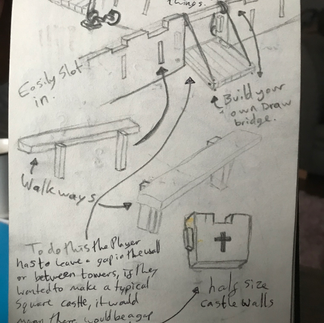 things.
Easily slot
in.
Build your
own Draw
bridge.
Walkways
To do this the Player
has to leave a gap in the wall
or between towers, if they
wanted to make a typical
square castle, it would
mean there would be a gap
half size
castle walls